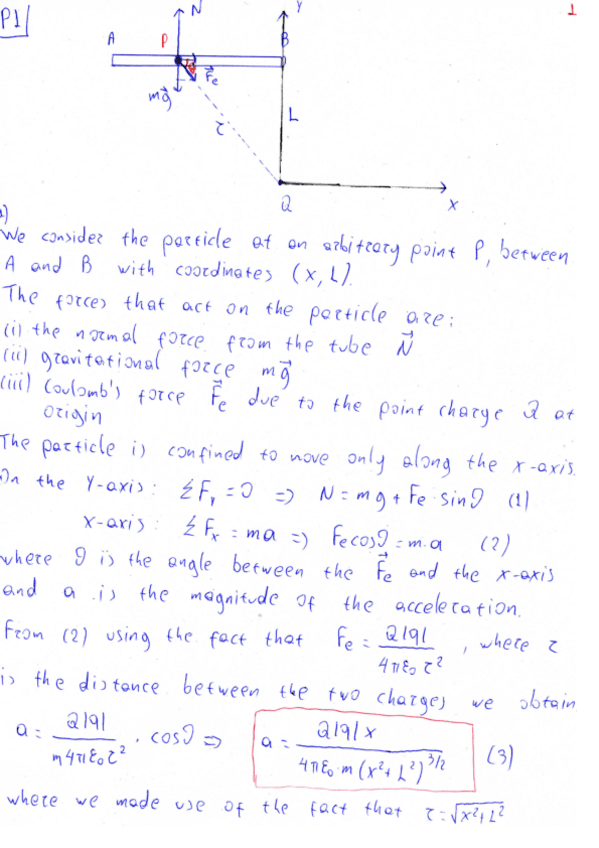 P1
1
N
y
A
P
B
θ
F⃗e
mg⃗
L
r
Q
x
a)
We consider the particle at an arbitrary point P, between
A and B with coordinates (x, L).
The forces that act on the particle are:
(i) the normal force from the tube N⃗
(ii) gravitational force mg⃗
(iii) Coulomb's force F⃗e due to the point charge Q at
origin
The particle is confined to move only along the x-axis.
On the Y-axis: ΣFy = 0 => N = mg + Fe·sinθ (1)
x-axis: ΣFx = ma => Fecosθ = m·a (2)
where θ is the angle between the F⃗e and the x-axis
and a is the magnitude of the acceleration.
From (2) using the fact that Fe = Q|q| / 4πε₀r², where r
is the distance between the two charges we obtain
a = Q|q| / m4πε₀r² · cosθ => a = Q|q|x / 4πε₀·m(x²+L²)^3/2 (3)
where we made use of the fact that r = √x²+L²